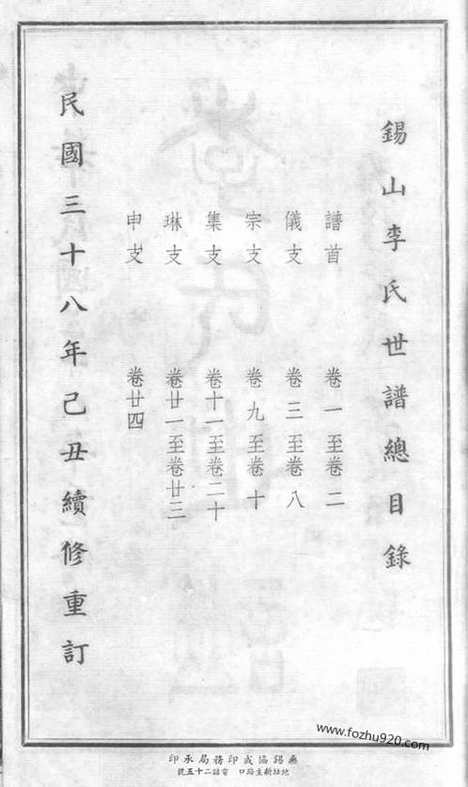 錫山李氏世譜總目錄
譜首　卷一至卷二
儀支　卷三至卷八
宗支　卷九至卷十
集支　卷十一至卷二十
琳支　卷廿一至卷廿三
申支　卷廿四
民國三十八年己丑續修重訂
無錫協成印務局承印
地址新生路口　電話二十五號
www.fozhu920.com